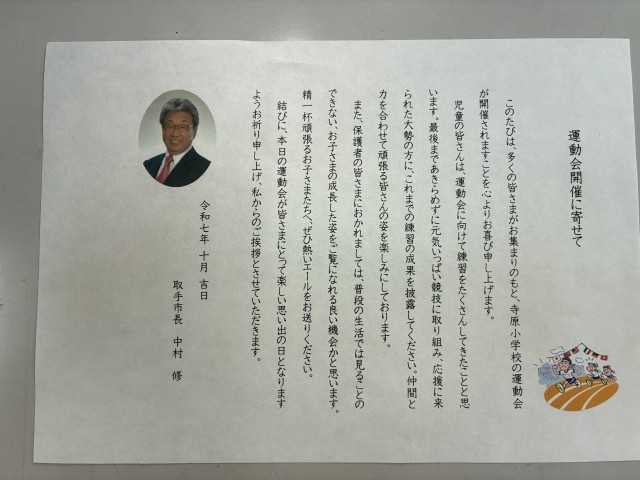 運動会開催に寄せて
このたびは、多くの皆さまがお集まりのもと、寺原小学校の運動会
が開催されますことを心よりお喜び申し上げます。
児童の皆さんは、運動会に向けて練習をたくさんしてきたことと思
います。最後まであきらめずに元気いっぱい競技に取り組み、応援に来
られた大勢の方に、これまでの練習の成果を披露してください。仲間と
力を合わせて頑張る皆さんの姿を楽しみにしております。
また、保護者の皆さまにおかれましては、普段の生活では見ることの
できない、お子さまの成長した姿をご覧になれる良い機会かと思います。
精一杯頑張るお子さまたちへ、ぜひ熱いエールをお送りください。
結びに、本日の運動会が皆さまにとって楽しい思い出の日となります
ようお祈り申し上げ、私からのご挨拶とさせていただきます。
令和七年 十月 吉日
取手市長 中村 修